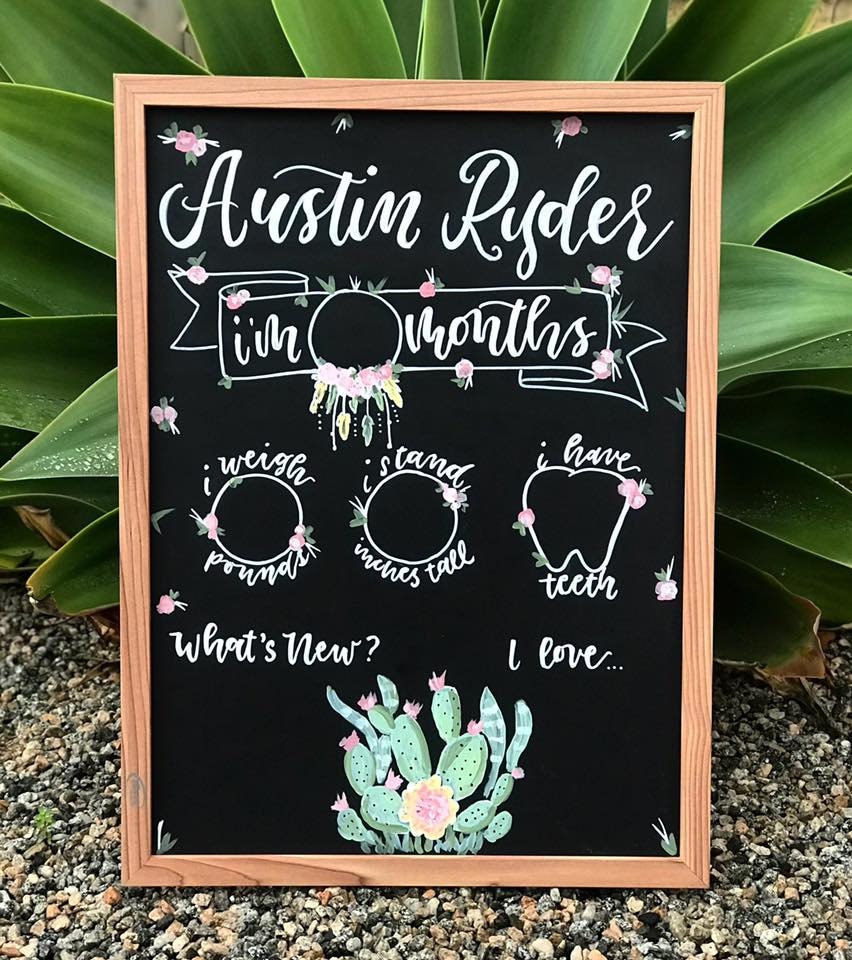 Austin Ryder
i'm months
i weigh
pounds
i stand
inches tall
i have
teeth
What's New?
I love...